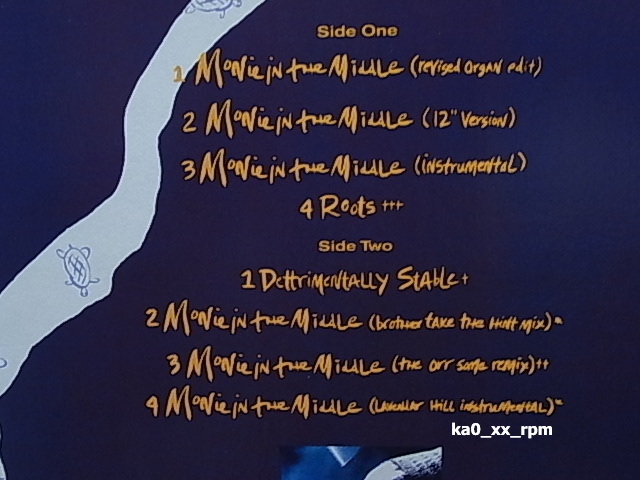 Side One
1 Monie in the Middle (revised organ edit)
2 Monie in the Middle (12" Version)
3 Monie in the Middle (instrumental)
4 Roots +++
Side Two
1 Dettrimentally Stable +
2 Monie in the Middle (brother take the hint mix)*
3 Monie in the Middle (the orr some remix)++
4 Monie in the Middle (Lavendar Hill instrumental)*
ka0_xx_rpm